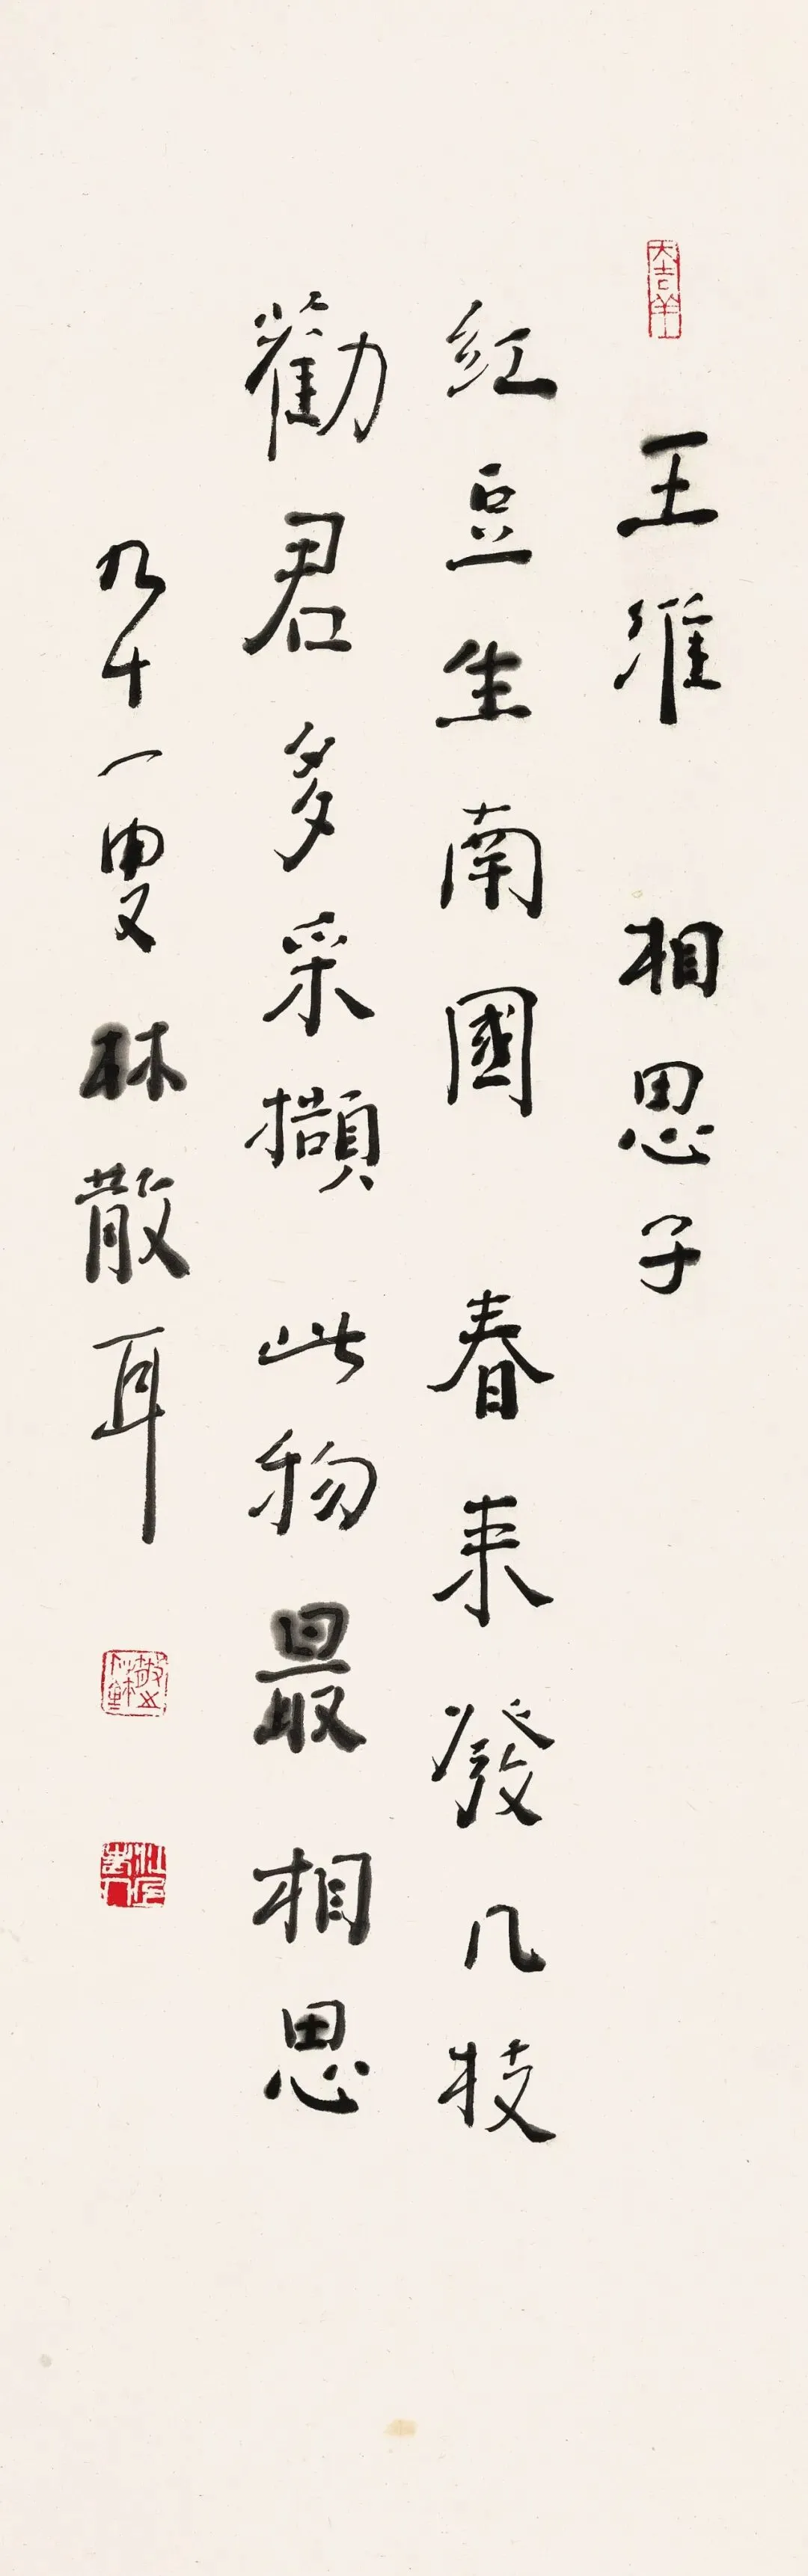 王維 相思子
紅豆生南國 春来發几枝
勸君多采擷 此物最相思
九十一叟林散耳
大吉羊